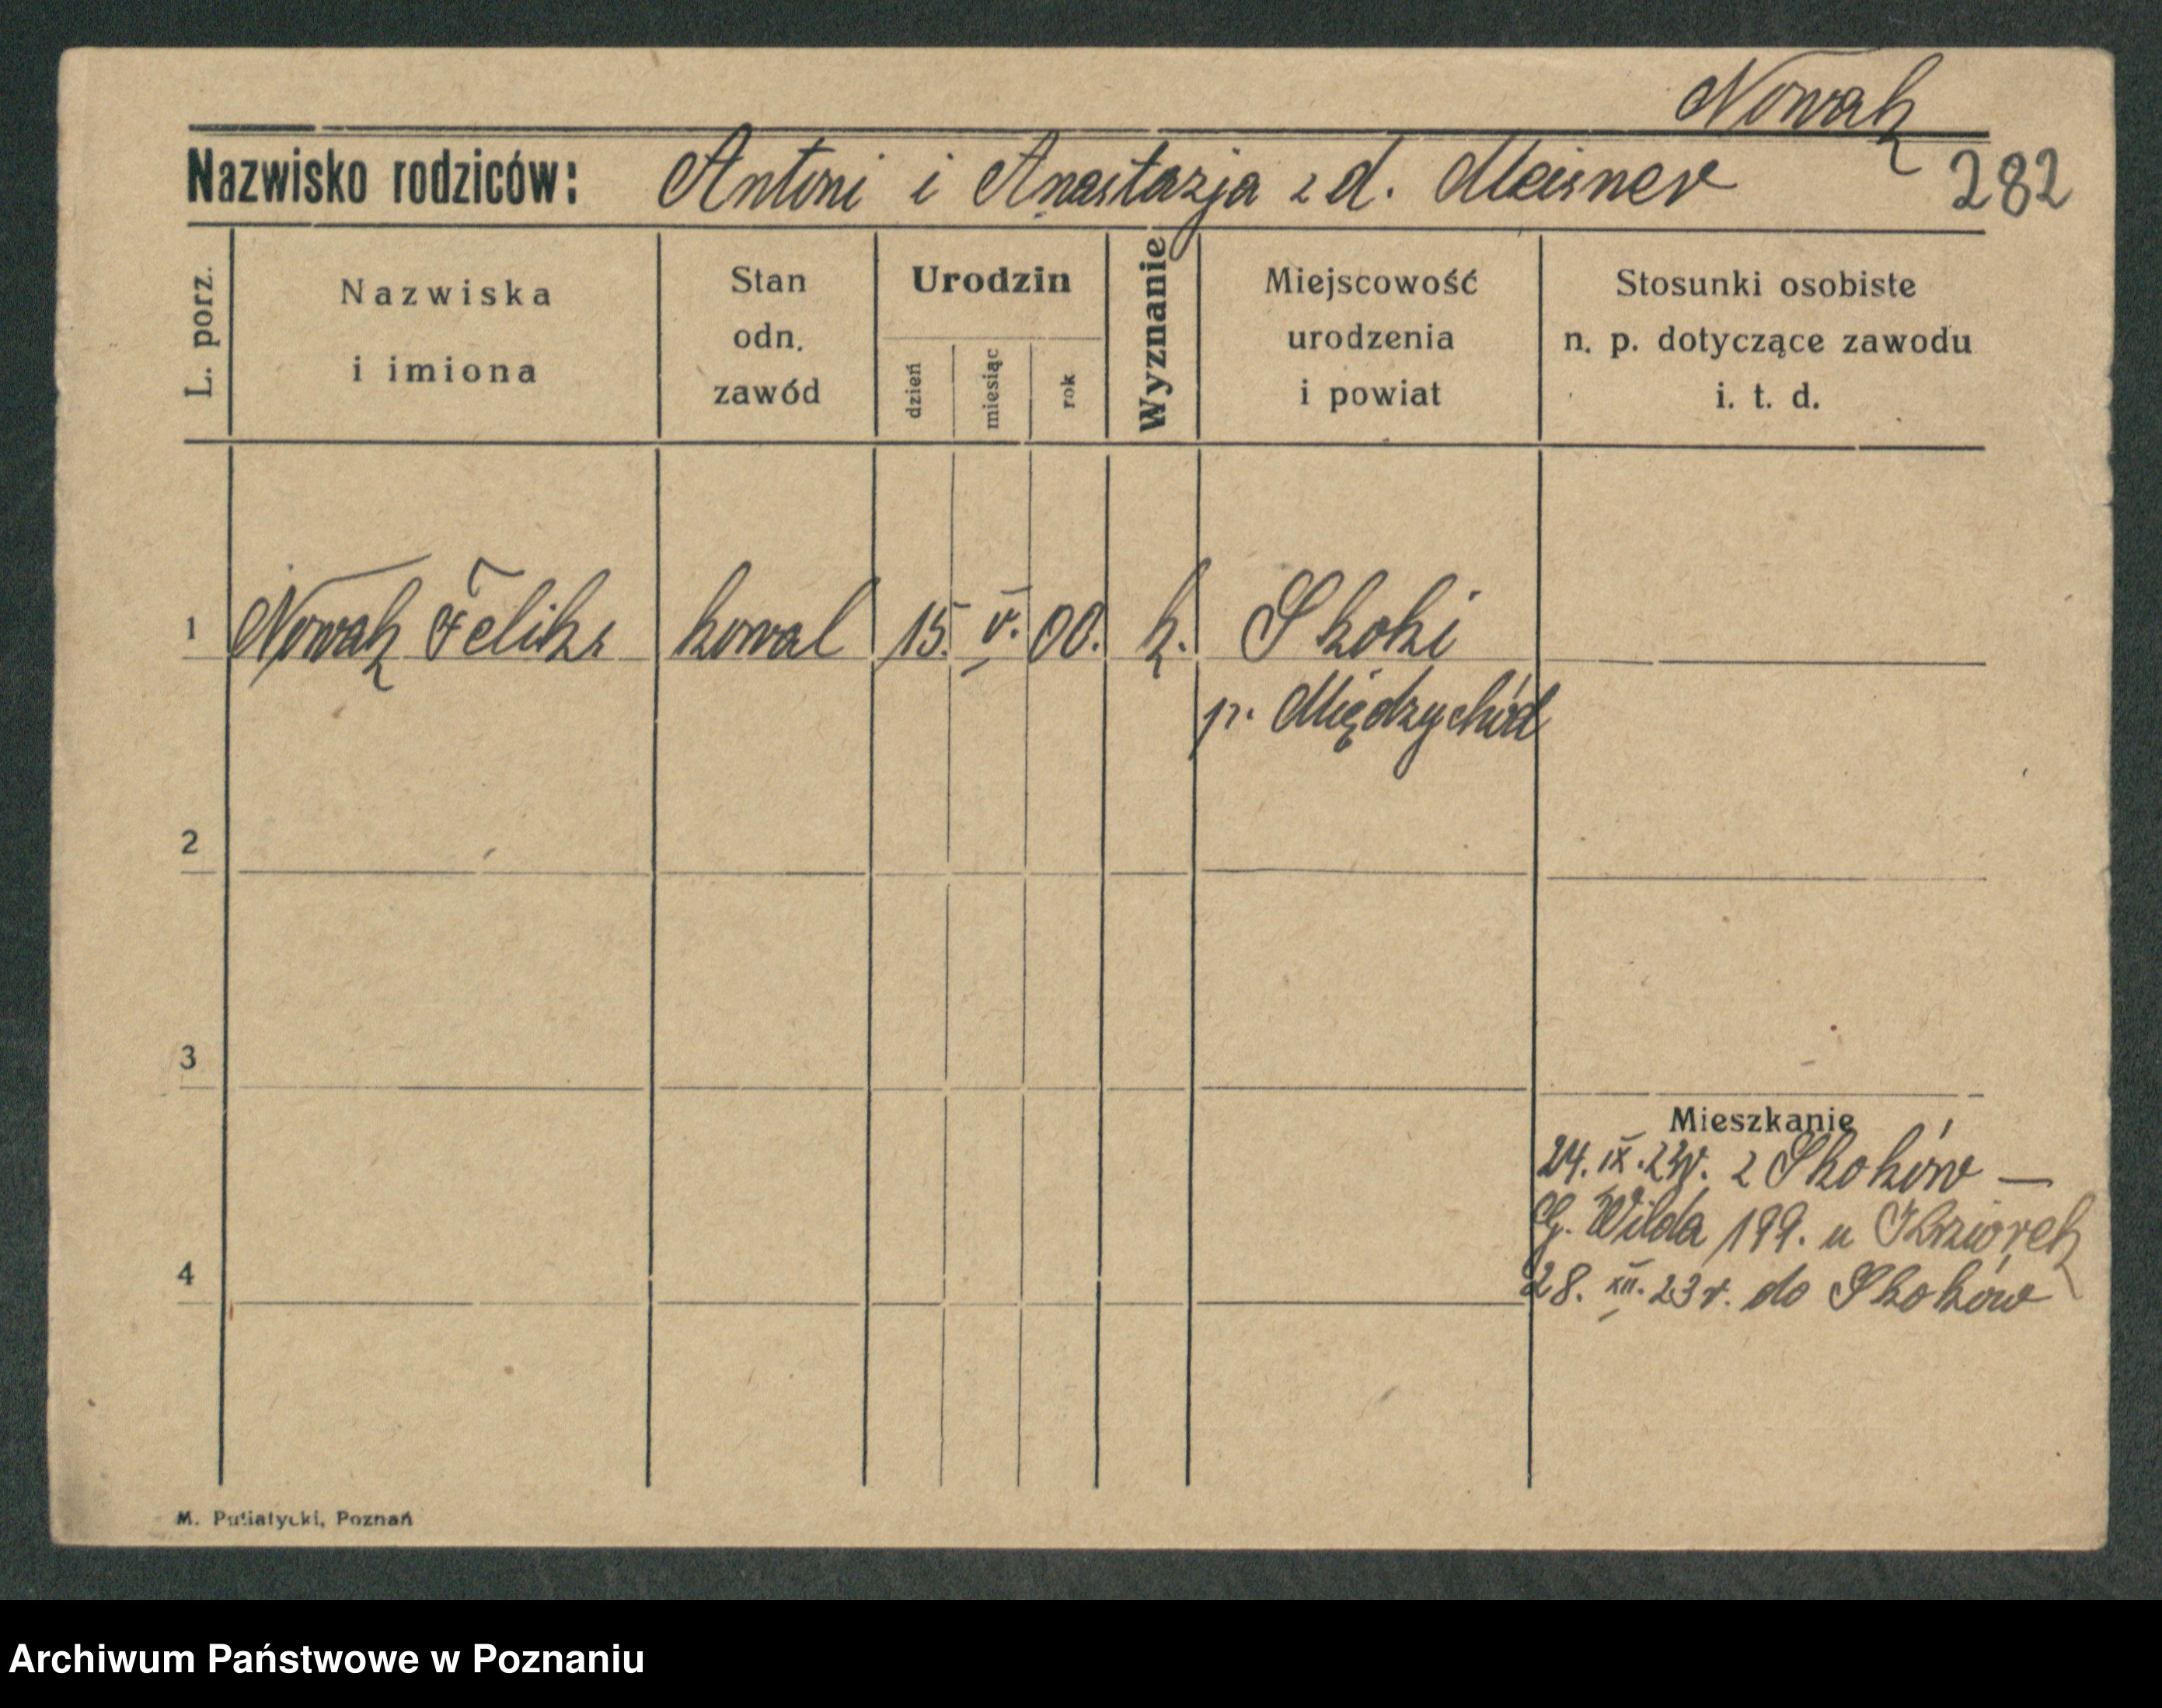 Nowak
Nazwisko rodziców: Antoni i Anastazja z d. Meisner 282
L. porz.
Nazwiska
i imiona
Stan
odn.
zawód
Urodzin
dzień
miesiąc
rok
Wyznanie
Miejscowość
urodzenia
i powiat
Stosunki osobiste
n. p. dotyczące zawodu
i. t. d.
1 Nowak Feliks kowal 15. V. 00. k. Skoki
p. Międzychód
2
3
Mieszkanie
24. IX. 23r. z Skoków —
G. Wilda 199. u
4
28. XII. 23 r. do Skoków
M. Putiatycki, Poznań
Archiwum Państwowe w Poznaniu